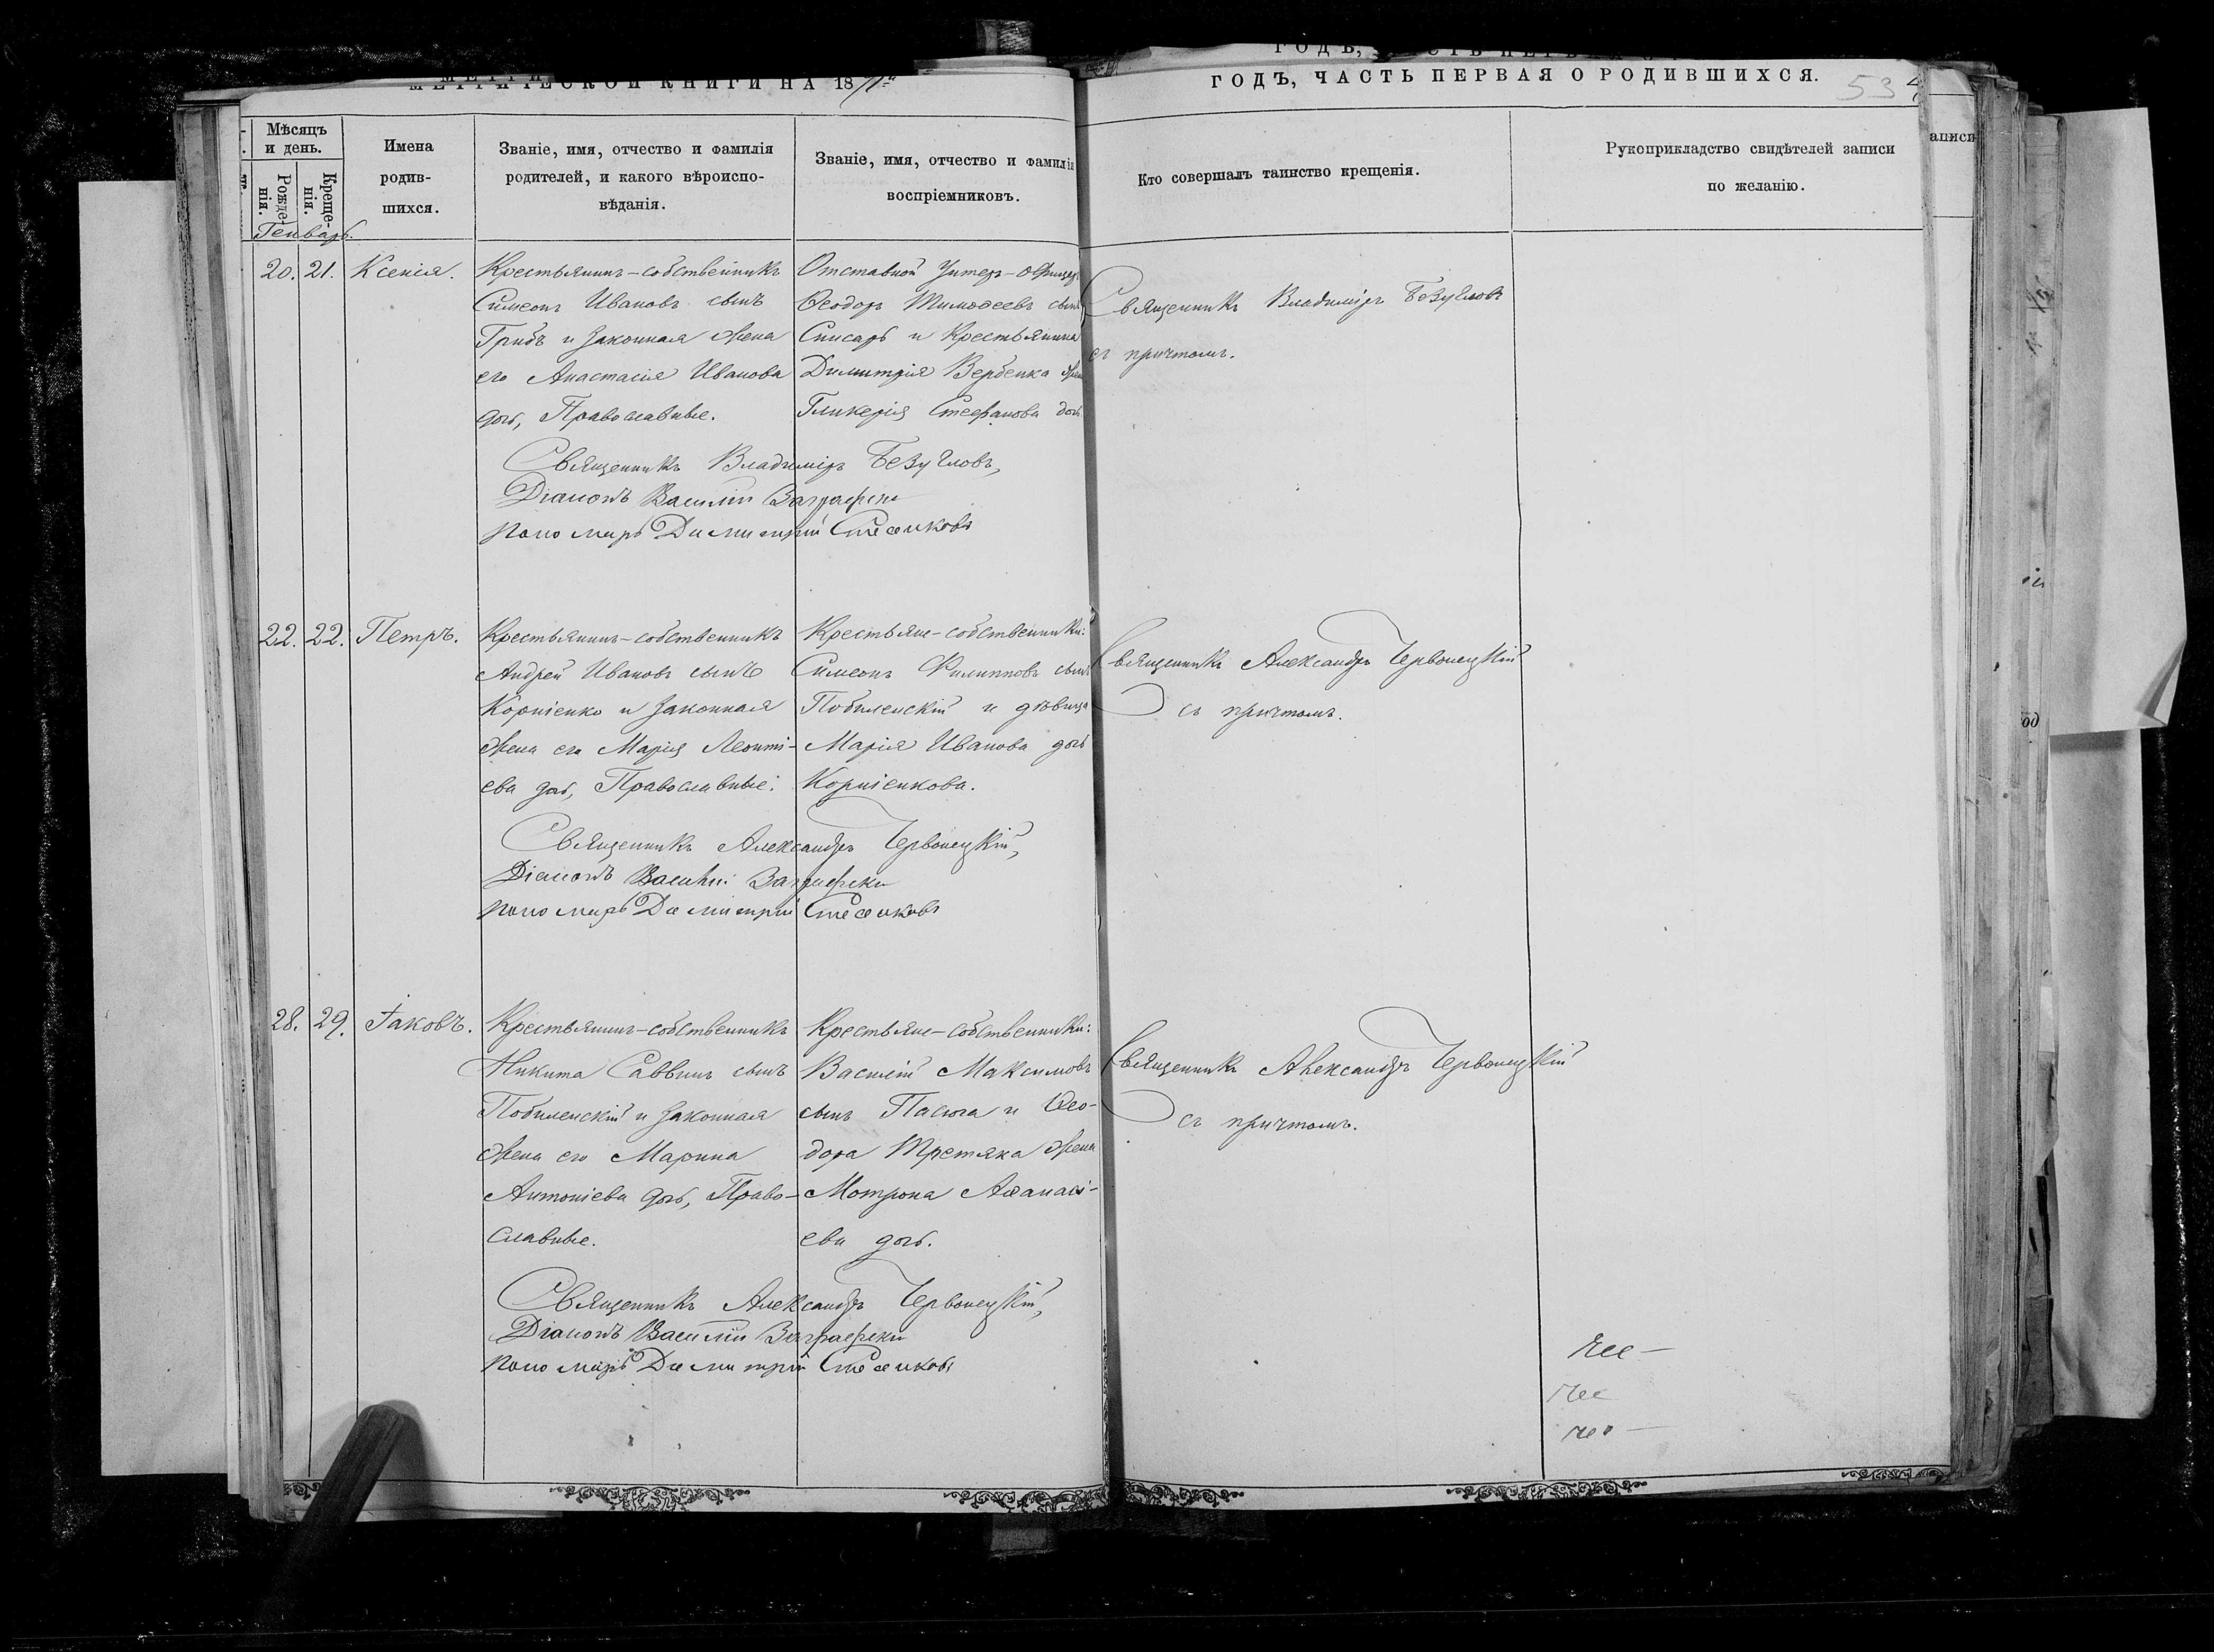 МЕТРИЧЕСКОЙ КНИГИ НА 1871й
ГОДЪ, ЧАСТЬ ПЕРВАЯ О РОДИВШИХСЯ.
53
Мѣсяцъ и день.
Рожденія.
Крещенія.
Имена родившихся.
Званіе, имя, отчество и фамилія
родителей, и какого вѣроиспо-
вѣданія.
Званіе, имя, отчество и фамилія
воспріемниковъ.
Кто совершалъ таинство крещенія.
Рукоприкладство свидѣтелей записи
по желанію.
Генварь.
20. 21. Ксенія.
Крестьянинъ-собственникъ
Симеонъ Ивановъ сынъ
Грибъ и законная жена
его Анастасія Иванова
дочь, Православные.
Отставной Унтеръ-офицеръ
Ѳеодоръ Тимоѳеевъ сынъ
Снисарь и Крестьянина
Димитрія Вербенка жена
Гликерія Стефанова дочь
Священникъ Владиміръ Безугловъ
съ причтомъ.
Священникъ Владиміръ Безугловъ,
Діаконъ Василій
Пономарь Димитрій
22. 22. Петръ.
Крестьянинъ-собственникъ
Андрей Ивановъ сынъ
Корніенко и законная
жена его Марія Леонті-
ева дочь, Православные.
Крестьяне-собственники:
Симеонъ Филипповъ сынъ
Побиленскій и дѣвица
Марія Иванова дочь
Корніенкова.
Священникъ Александръ Червонецкій
съ причтомъ.
Священникъ Александръ Червонецкій,
Діаконъ Василій
Пономарь Димитрій
28. 29. Іаковъ.
Крестьянинъ-собственникъ
Никита Саввинъ сынъ
Побиленскій и законная
жена его Марина
Антоніева дочь, Право-
славные.
Крестьяне-собственники:
Василій Максимовъ
сынъ Пасюга и Ѳео-
дора Третяка жена
Мотрона Аѳанасі-
ева дочь.
Священникъ Александръ Червонецкій
съ причтомъ.
Священникъ Александръ Червонецкій,
Діаконъ Василій
Пономарь Димитрій